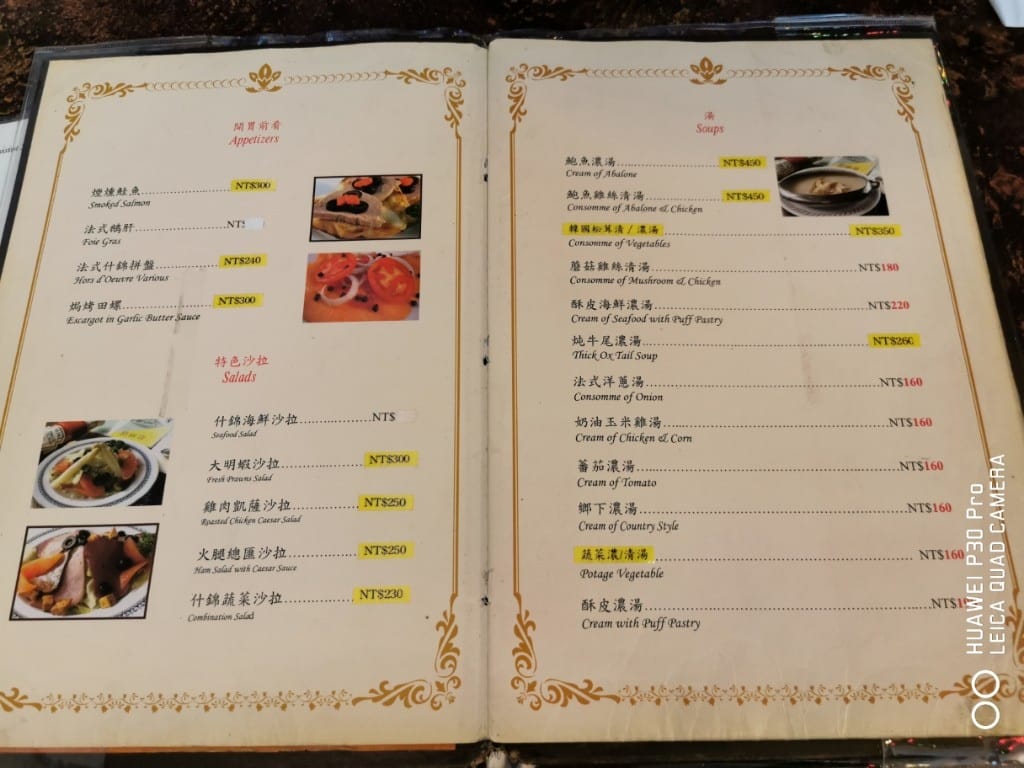 開胃前肴
Appetizers
煙燻鮭魚 NT$300
Smoked Salmon
法式鵝肝 NT$
Foie Gras
法式什錦拼盤 NT$240
Hors d'Oeuvre Various
焗烤田螺 NT$300
Escargot in Garlic Butter Sauce
特色沙拉
Salads
什錦海鮮沙拉 NT$
Seafood Salad
大明蝦沙拉 NT$300
Fresh Prawns Salad
雞肉凱薩沙拉 NT$250
Roasted Chicken Caesar Salad
火腿總匯沙拉 NT$250
Ham Salad with Caesar Sauce
什錦蔬菜沙拉 NT$230
Combination Salad
湯
Soups
鮑魚濃湯 NT$450
Cream of Abalone
鮑魚雞絲清湯 NT$450
Consomme of Abalone & Chicken
韓國松茸清 / 濃湯 NT$350
Consomme of Vegetables
蘑菇雞絲清湯 NT$180
Consomme of Mushroom & Chicken
酥皮海鮮濃湯 NT$220
Cream of Seafood with Puff Pastry
炖牛尾濃湯 NT$260
Thick Ox Tail Soup
法式洋蔥湯 NT$160
Consomme of Onion
奶油玉米雞湯 NT$160
Cream of Chicken & Corn
蕃茄濃湯 NT$160
Cream of Tomato
鄉下濃湯 NT$160
Cream of Country Style
蔬菜濃/清湯 NT$160
Potage Vegetable
酥皮濃湯
Cream with Puff Pastry
HUAWEI P30 Pro
LEICA QUAD CAMERA